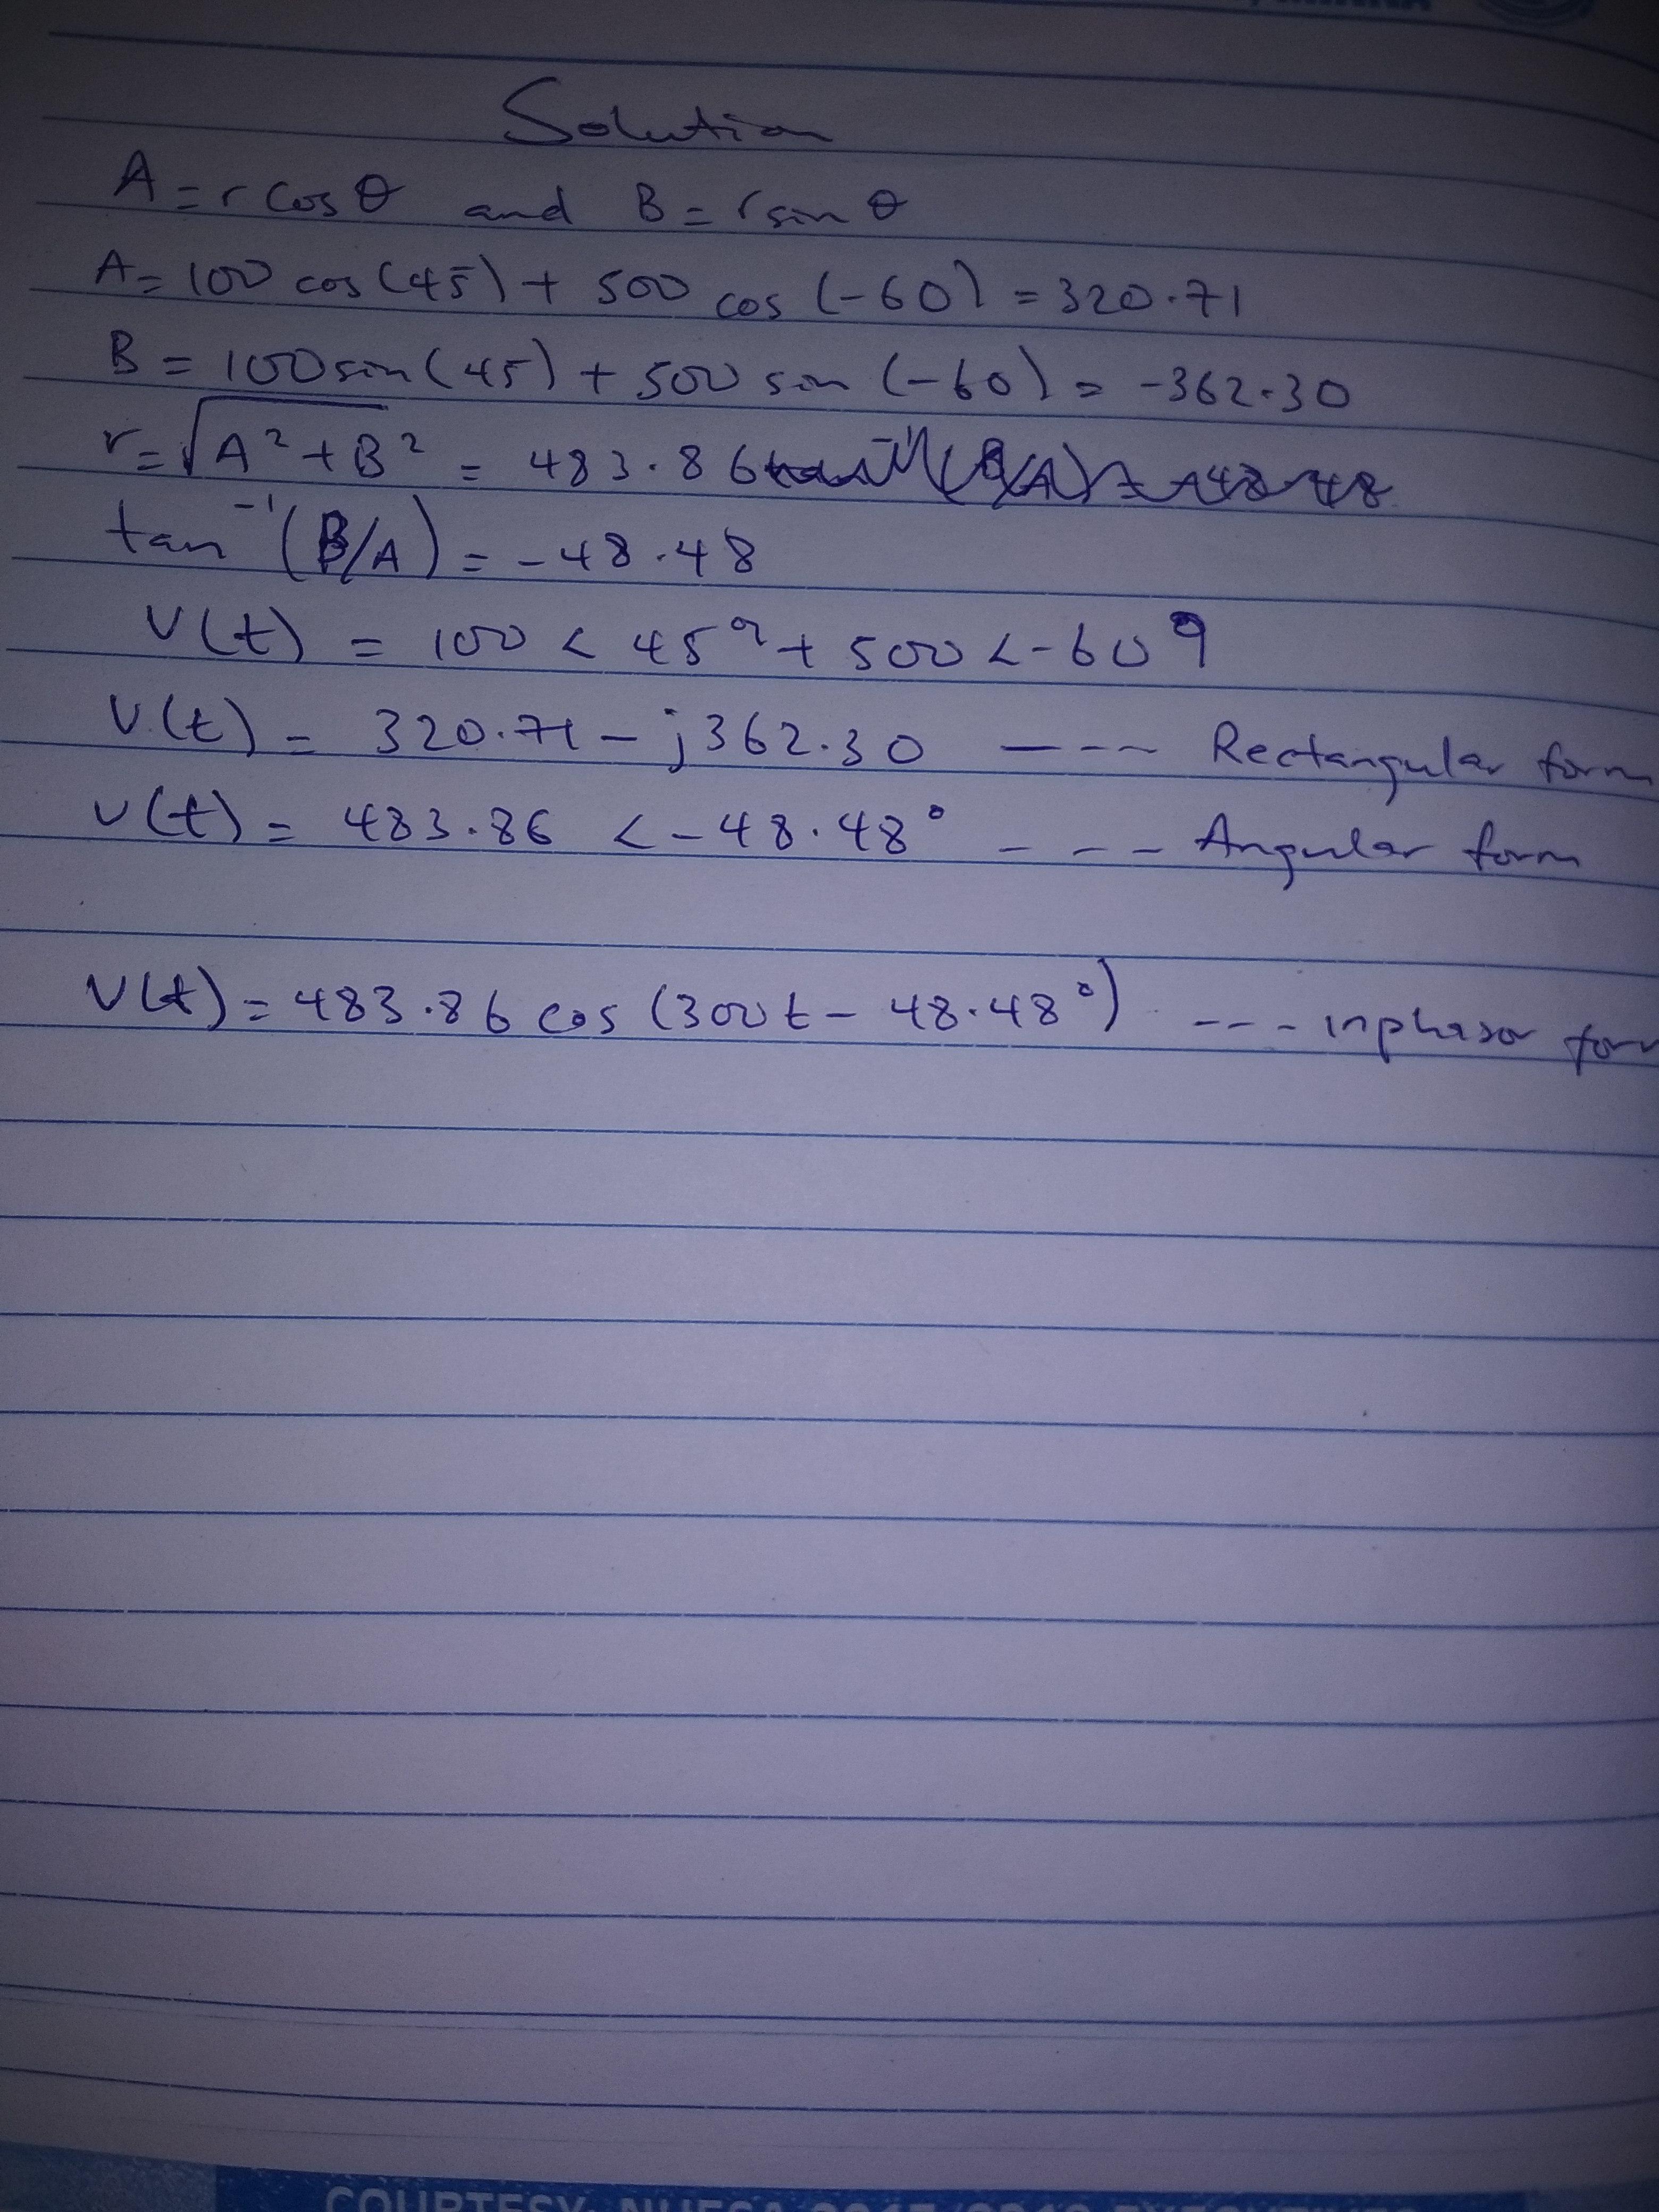 Solution
A = r cos θ and B = r sin θ
A = 100 cos (45) + 500 cos (-60) = 320.71
B = 100 sin (45) + 500 sin (-60) = -362.30
r = √A² + B² = 483.86
tan⁻¹ (B/A) = -48.48
V(t) = 100 < 45° + 500 < -60°
V(t) = 320.71 - j362.30 --- Rectangular form
V(t) = 483.86 < -48.48° --- Angular form
V(t) = 483.86 cos (300t - 48.48°) --- inphasor
COURTESY: